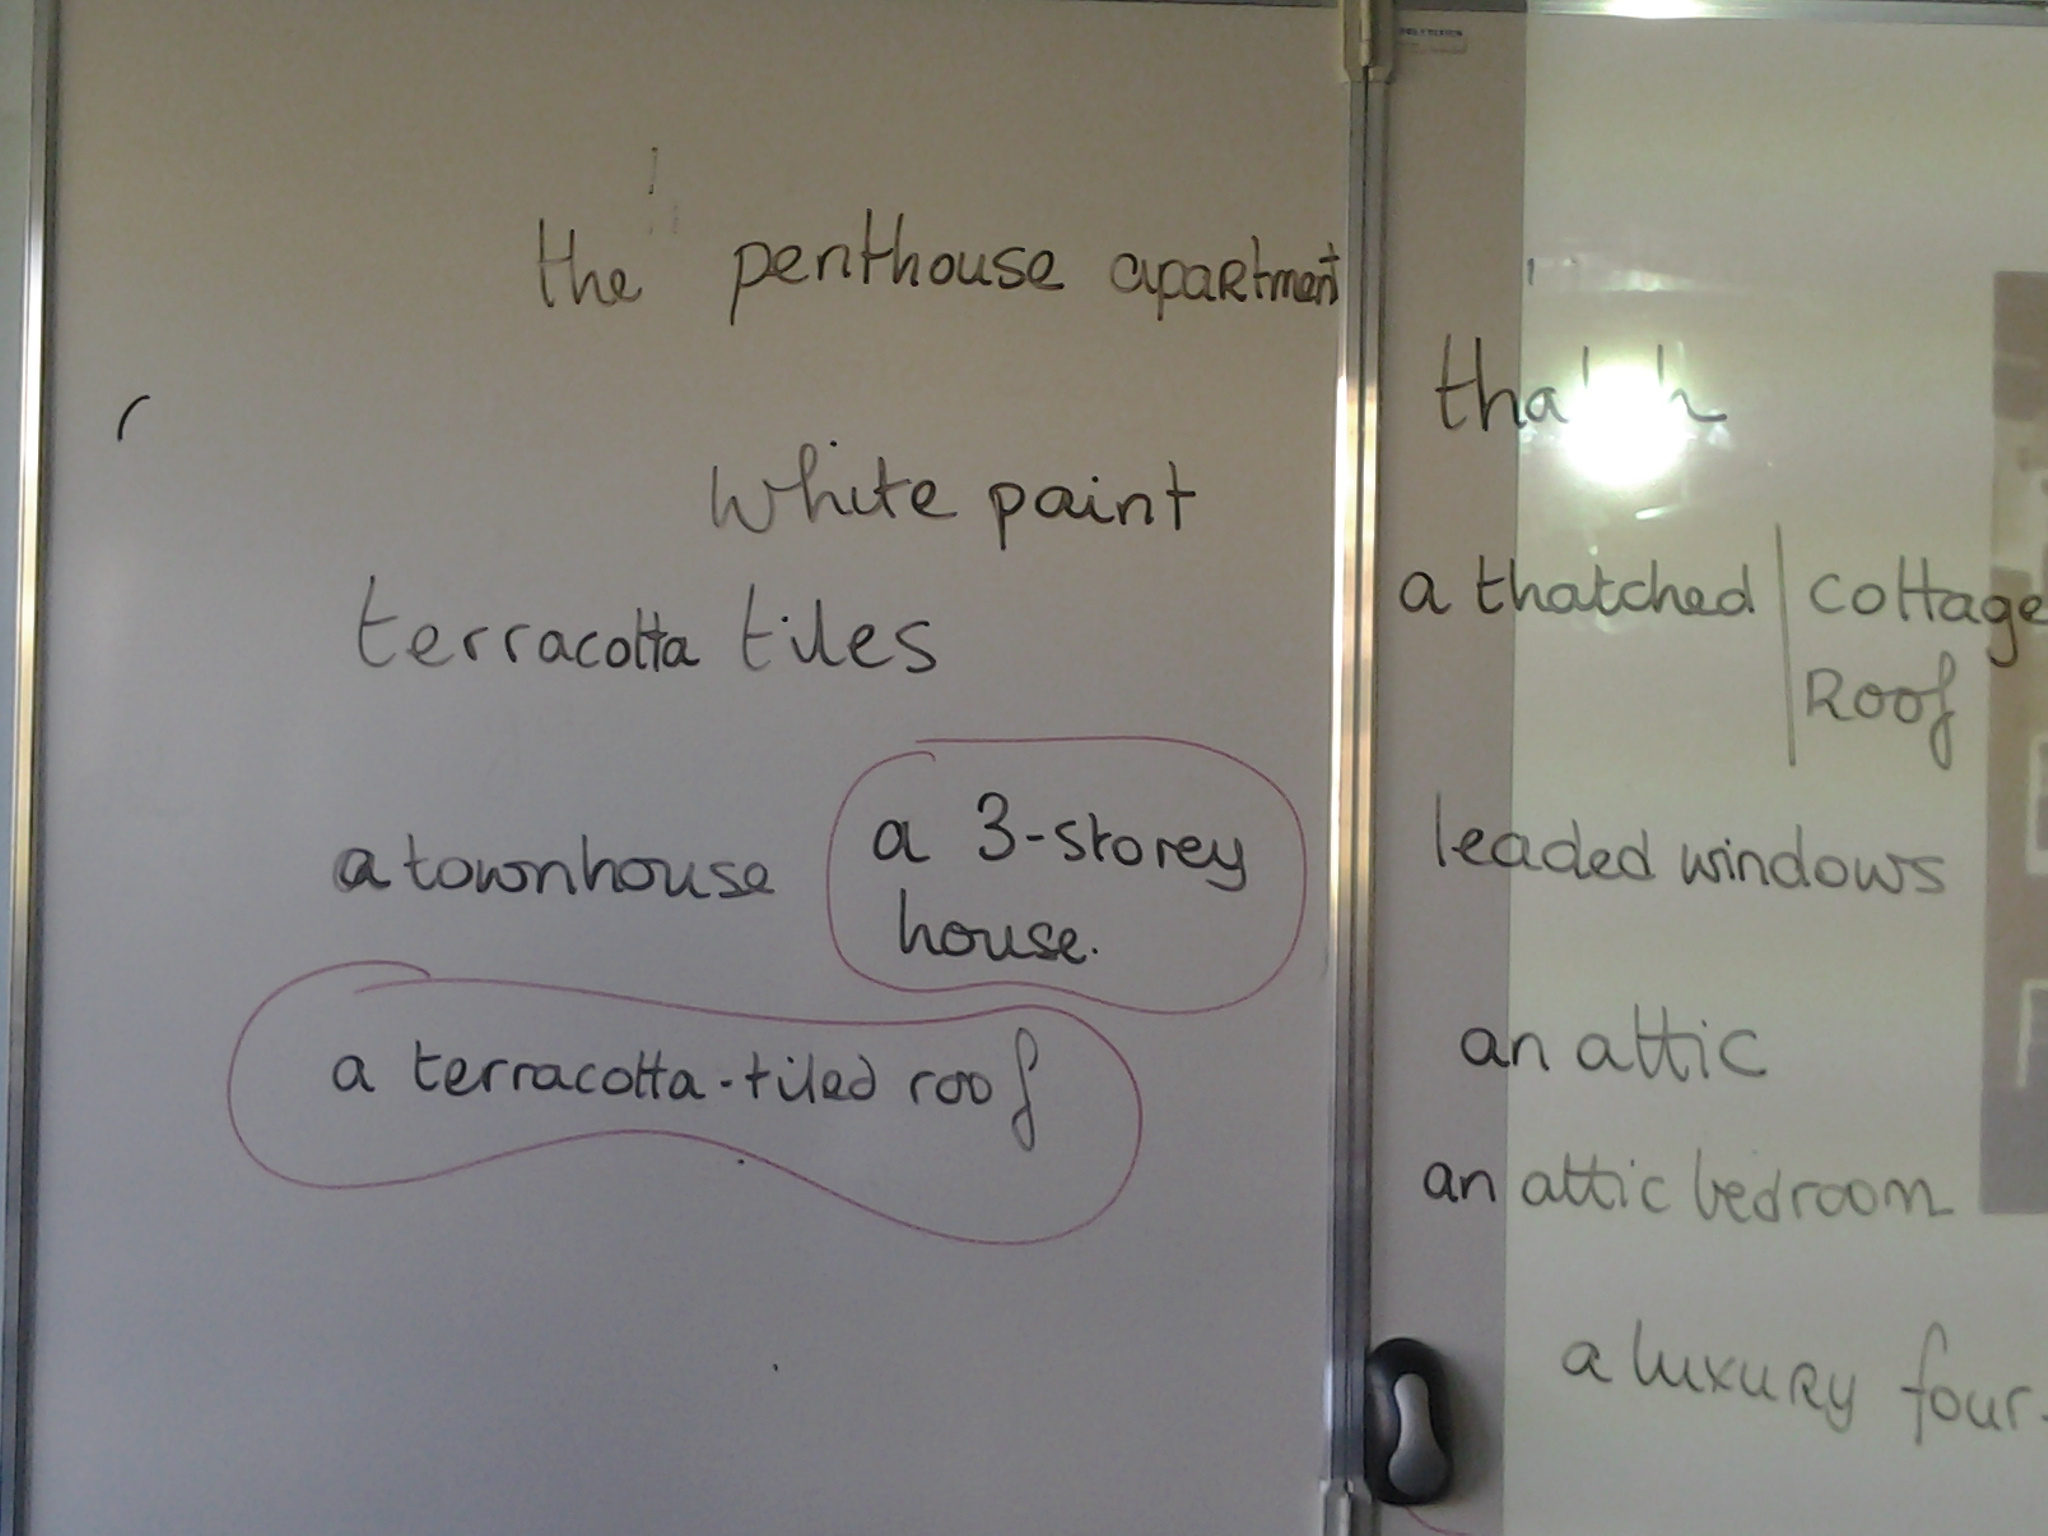 the penthouse apartment
white paint
terracotta tiles
a townhouse
a 3-storey
house.
a terracotta-tiled roof
a thatched cottage
Roof
leaded windows
an attic
an attic bedroom
a luxury four-